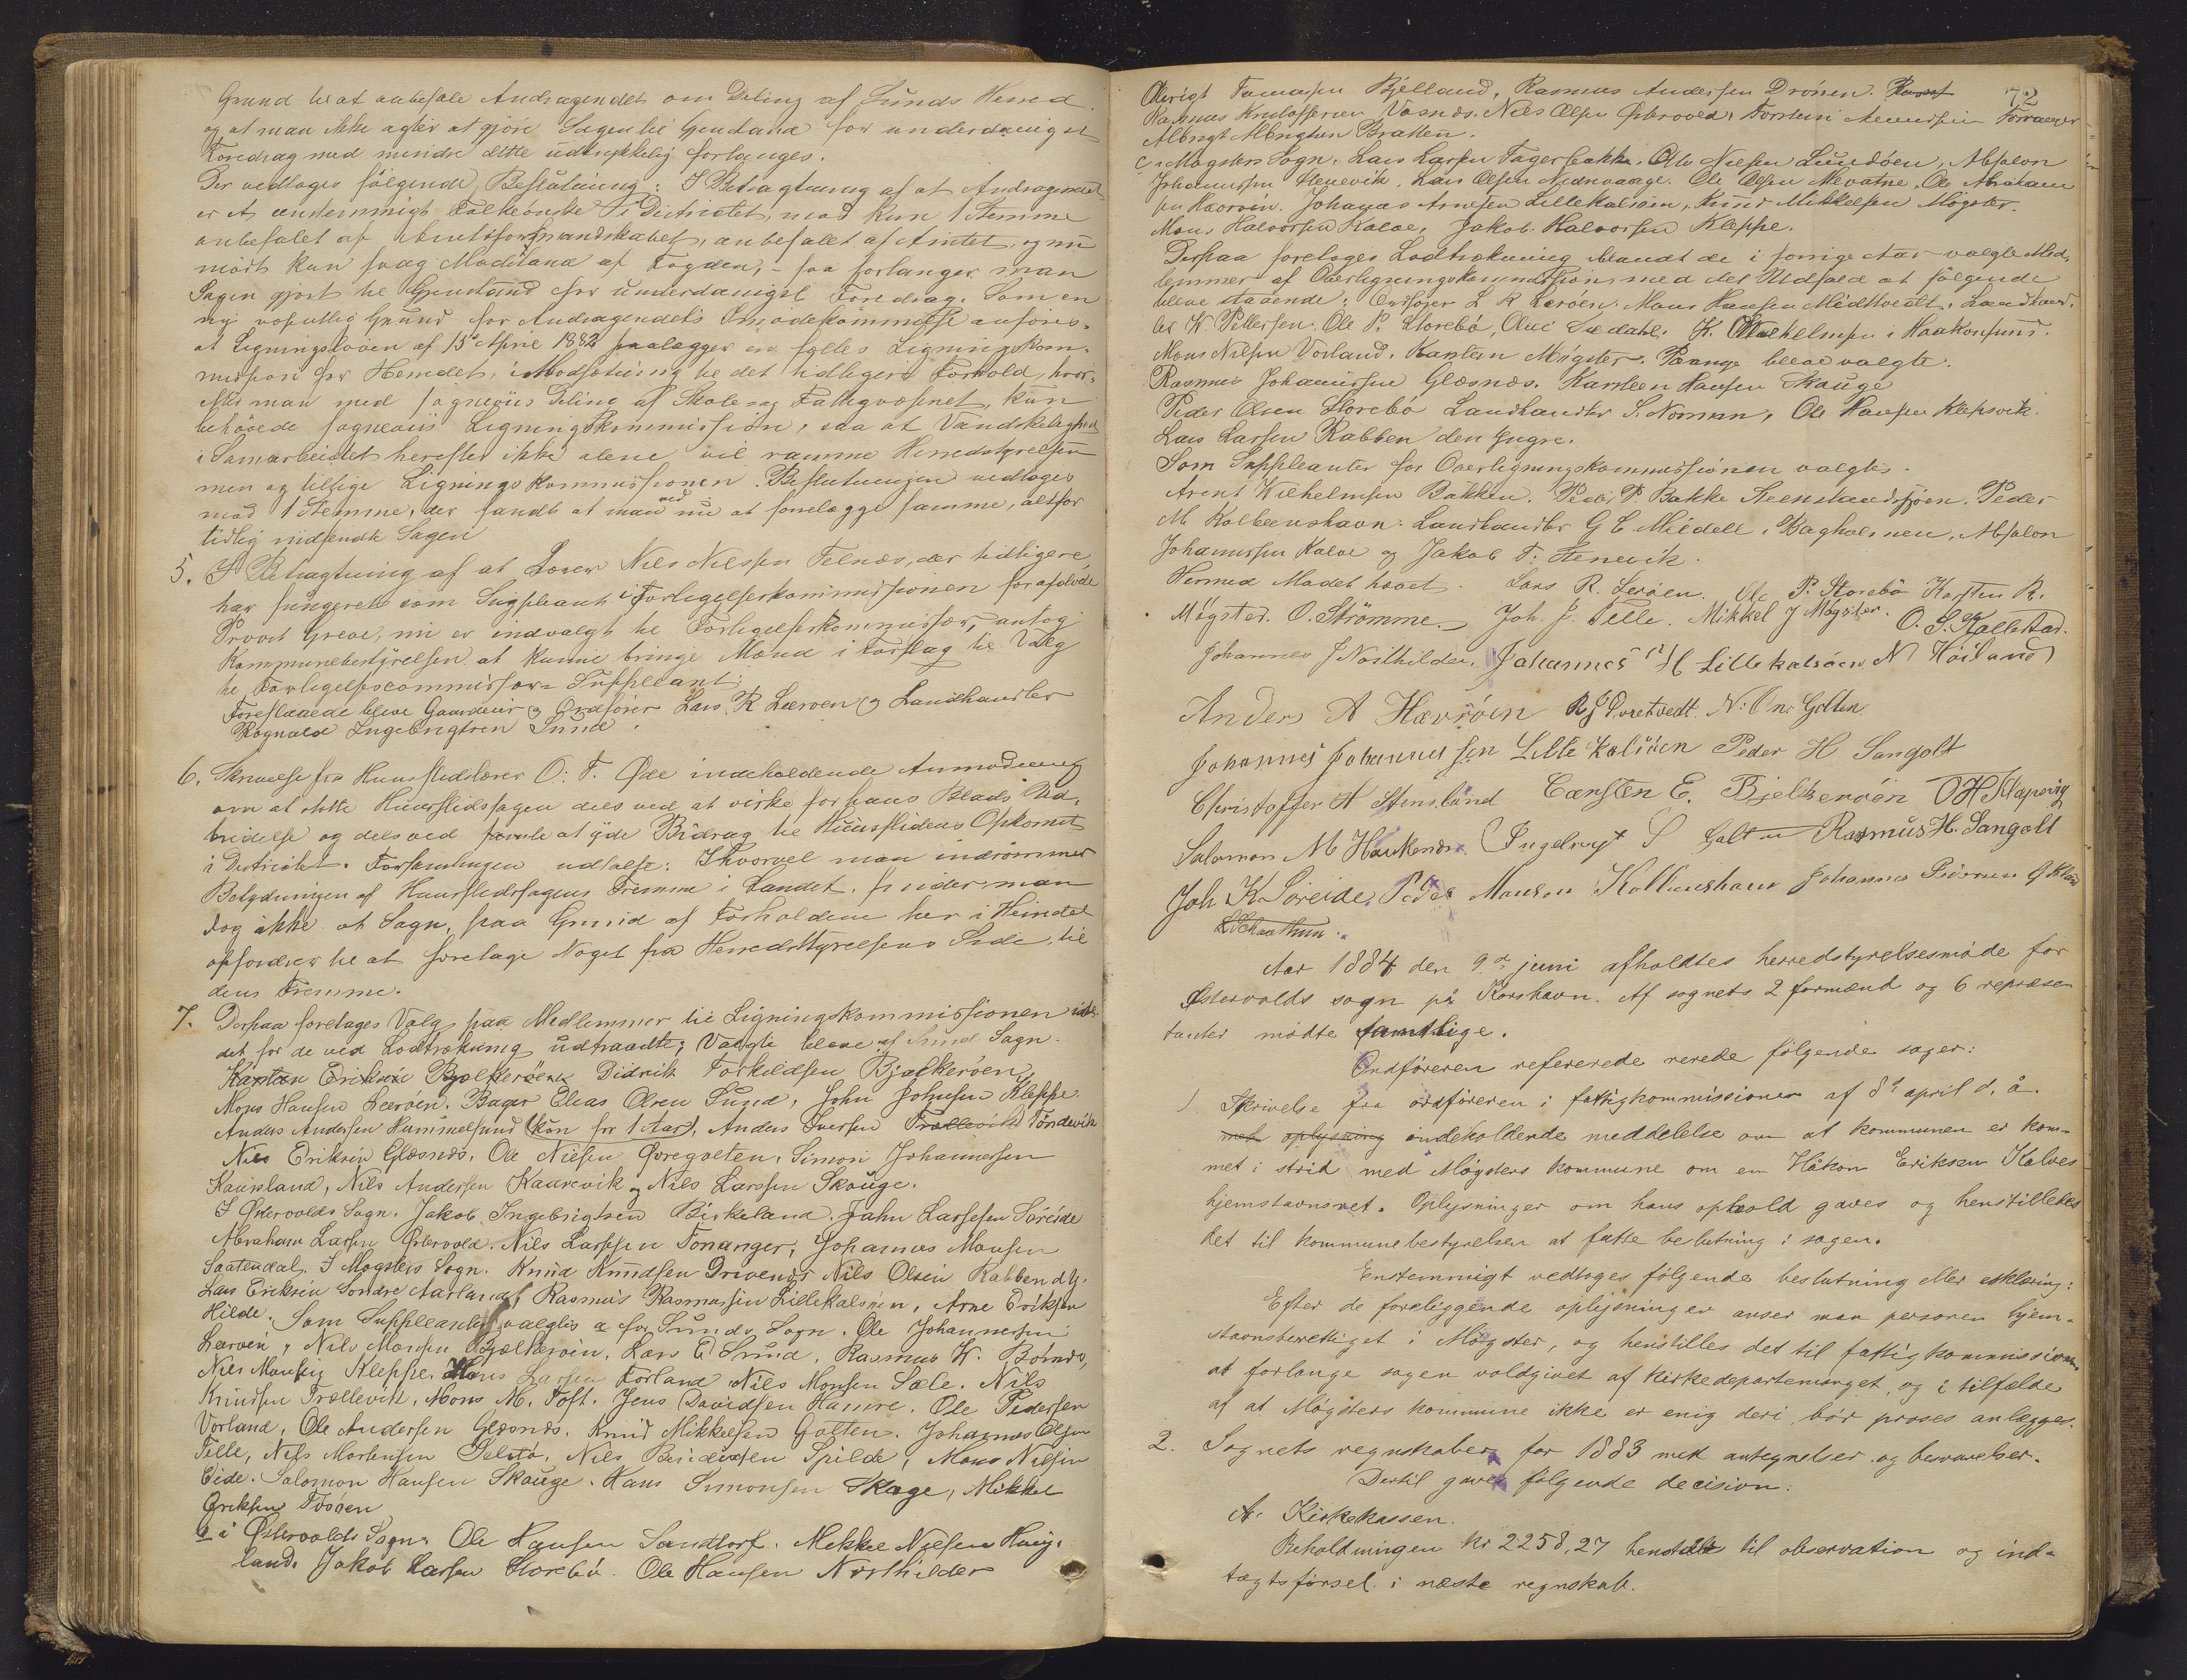 Grund til at anbefale Andragendet om Deling af Sunds Herred
og at man ikke agter at gjøre Sagen til Gjenstand for underdanigst
Foredrag med mindre dette udtrykkelig forlanges.
Der vedtoges følgende Beslutning: I Betragtning af at Andragendet
er et eenstemmigt Folkeønske i Districtet, mod kun 1 Stemme
anbefalet af Amtsformandskabet, anbefalet af Amtet, og nu
mødt kun svag Modstand af Fogden, – saa forlanger man
Sagen gjort til Gjenstand for underdanigst Foredrag. Som en
ny væsentlig Grund for Andragendets Imødekommelse anføres
at Ligningsloven af 15de April 1882 paalægger en fælles Ligningskom-
mission for Herredet, i Modsætning til det tidligere Forhold, hvor-
efter man med sogneviis Deling af Skole og Fattigvæsnet, kun
behøvede sogneviis Ligningskommission, saa at Vandskelighed
i Samarbeidet herefter ikke alene vil ramme Herredstyrelsen
men og tillige Ligningskommissionen. Beslutningen vedtoges
mod 1 Stemme, der fandt at man ved nu at forelægge samme, altfor
tidlig indsendte Sagen
5. I Betragtning af at Lærer Nils Nilssen Telnæs, der tidligere
har fungeret som Suppleant i Forligelseskommissionen for afdøde
Provst Greve, nu er indvalgt til Forligelseskommissær, antog
Kommunebestyrelsen at kunne bringe Mænd i Forslag til Valg
til Forligelsescommissær-Suppleant;
Foreslaaede bleve Gaardeier og Ordfører Lars R Lerøen og Landhandler
Rognald Ingebrigtsen Sund.
6. Skrivelse fra Huusflidslærer O: T. Øde indeholdende Anmodning
om at støtte Huusflidssagen dels ved at virke for hans Blads Ud-
bredelse og dels ved at yde Bidrag til Huusflidens Opkomst
i Districtet. Forsamlingen udtalte: Ihvorvel man indrømmer
Betydningen af Huusflidssagens Fremme i Landet, finder man
dog ikke at Sagn, paa Grund af Forholdene her i Herredet
opfordrer til at foretage Noget fra Herredsstyrelsens Side, til
dens Fremme.
7. Derpaa foretoges Valg paa Medlemmer til Ligningskommissionen iste-
det for de ved Lodtrækning udtraadte; Valgte bleve af Sund Sogn
Karsten Eriksen Bjelkerøen, Didrik Torkildsen Bjelkerøen,
Mons Hansen Leerøen, Bager Elias Olsen Sund, John Johnsen Kleppe.
Anders Andersen Hummelsund (kun for 1 Aar), Anders Iversen Trællevik Tøndevik
Nils Eriksen Glæsnæs, Ole Nilsen Øvregolten, Simon Johannessen
Kausland, Nils Andersen Kaarevik og Nils Larssen Skauge.
I Østervolds Sogn. Jakob Ingebrigtsen Birkeland. Jahn Larssesen Søreide
Abraham Larsen Østervold. Nils Larssen Fonanger, Johannes Monsen
Saatendal. I Møgsters Sogn. Knud Knudsen Drivenes Nils Olsen Rabben d.y.
Lars Eriksen Søndre Aarland, Rasmus Rasmussen Lillekalsøen, Arne Eriksen
Hilde. Som Suppleanter valgtes a for Sunds Sogn. Ole Johannesen
Leerøen, Nils Monsen Bjelkerøen, Lars E Sund, Rasmus K. Børnæs,
Nils Monsen Kleppe. Hans Larsen Forland Nils Monsen Sæle. Nils
Knudsen Trællevik, Mons M. Toft. Jens Davidsen Hamre. Ole Pedersen
Vorland, Ole Andersen Glesnæs. Knud Mikkelsen Golten. Johannes Olsen
Telle, Nils Mortensen Selstø, Nils Benediksen Spilde, Mons Nilsen
Eide. Salomon Hansen Skauge. Hans Simonsen Skoge, Mikkel
Eriksen Tøsøen
b i Østervolds Sogn. Ole Hansen Sandtorf. Mekkel Nielsen Haug-
land. Jakob Larsen Storebø. Ole Hansen Nordhilder
72
Tomassen Bjelland, Rasmus Andersen Drønen.
Rasmus Kristoffersen Vasnes. Nils Olsen Østervold, Torsten Forranger
Albrigt Albrigtsen Bratten.
c i Møgsters Sogn. Lars Larsen Fagerbakke. Ole Nielsen Lundøen, Absalon
Johannessen Stenevik. Lars Olsen Navnvaage. Ole Olsen Nevatne, Ole Abraham
sen Havrøen. Johannes Arnesen Lillekalsøen, Knud Mikkelsen Møgster.
Mons Halvorsen Kalve, Jakob Halvorsen Kleppe.
Derpaa foretoges Lodtrækning blandt de i forrige Aar valgte Med-
lemmer af Overligningskommission, med det Udfald at følgende
bleve staaende: Ordfører L R Lerøen. Mons Hansen Midttveidt, Landhand-
ler K. Pettersen. Ole P. Storebø, Oluf Sædahl, K. Wilhelmsen i Haakonsund.
Mons Nilsen Vorland, Karsten Møgster. Paanye bleve valgte.
Rasmus Johannessen Glæsnæs. Karsten Hansen Skauge
Peder Olsen Storebø Landhandler S. Norman, Ole Hansen Klepsvik.
Lars Larsen Rabben den Yngre.
Som Suppleanter for Overligningskommissionen valgtes.
Arent Wilhelmsen Bakken. Peder P. Bakke Steenslandsjøen. Peder
M Kolbeenshavn. Landhandler G E Mildell, Bagholmen, Absalon
Johannessen Kalve og Jakob T. Stenevik.
Hermed Mødet hævet. Lars R. Lerøen. Ole P. Storebø Karsten R.
Møgster. O. Strømme Joh. J. Telle. Mikkel J Møgster. O. S. Kallestad.
Johannes J Nordhilder, Johannes H Lillekalsøen N Høiland
Anders A Hævrøen R J Tveitvedt. N. On. Golten
Johannes Johannessen Lille Kalsøen Peder H Sangolt
Christoffer H Stensland Carsten E. Bjelkerøen O H Klepsvig
Salomon M Haukenæs. Ingebregt S Golten Rasmus H. Sangolt
Joh K Søreide, Peder Monsen Kolbenshavn Johannes Pedersen
Aar 1884 den 9de juni afholdtes herredstyrelsesmøde for
Østervolds sogn på Korshavn. Af sognets 2 formænd og 6 repræsen
tanter mødte samtlige.
Ordføreren refererede rerede følgende sager:
1 Skrivelse fra ordføreren i fattigkommissionen af 8de april d. å.
med oplysning indeholdende meddelelse om at kommunen er kom-
met i strid med Møgsters kommune om en Håkon Eriksen Kalves
hjemstavnsret. Oplysninger om hans ophold gaves og henstilledes
det til kommunebestyrelsen at fatte beslutning i sagen.
Enstemmigt vedtoges følgende beslutning eller erklæring:
Efter de foreliggende oplysninger anser man personen hjem-
stavnsberettiget i Møgster, og henstilles det til fattigkommissionen
at forlange sagen voldgivet af kirkedepartementet, og i tilfælde
af at Møgsters kommune ikke er enig deri bør proses anlægges.
2. Sognets regnskaber for 1883 med antegnelser og besvarelser.
Dertil gaves følgende decision:
A. Kirkekassen.
Beholdningen kr 2258,27 henstilles til observation og ind-
tægtsførsel i næste regnskab.